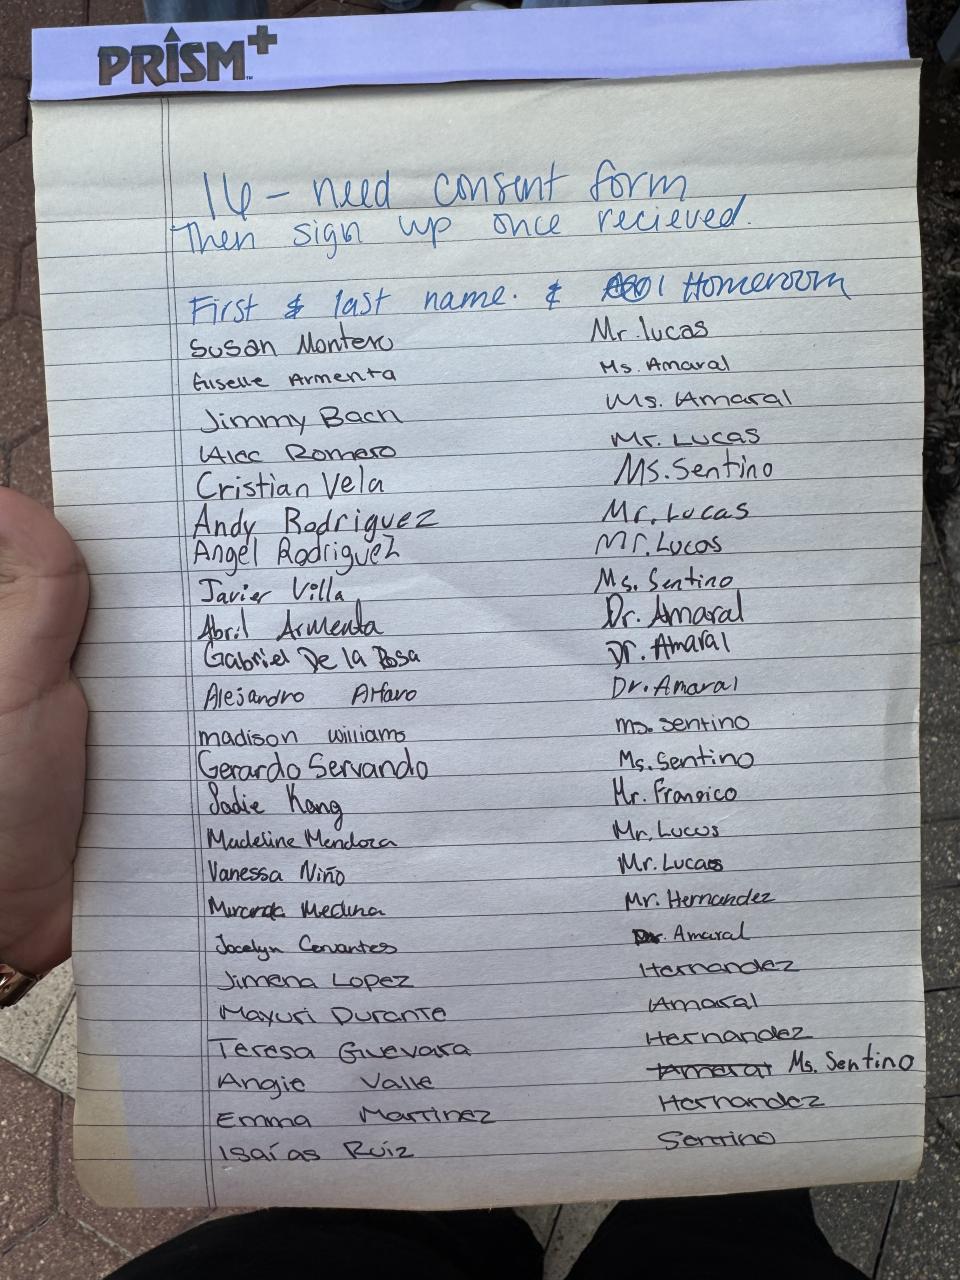 PRISM+™
16 - need consent form
Then sign up once recieved.
First & last name. & Homeroom
Susan Montero Mr. lucas
Giselle Armenta Ms. Amaral
Jimmy Bach Ms. Amaral
Alec Romero Mr. Lucas
Cristian Vela Ms. Sentino
Andy Rodriguez Mr. Lucas
Angel Rodriguez Mr. Lucas
Javier Villa Ms. Sentino
Abril Armenta Dr. Amaral
Gabriel De la Rosa Dr. Amaral
Alejandro Alfaro Dr. Amaral
madison williams ms. sentino
Gerardo Servando Ms. Sentino
Sadie Kang Mr. Fransico
Madeline Mendoza Mr. Lucas
Vanessa Niño Mr. Lucas
Miranda Medina Mr. Hernandez
Jocelyn Cervantes Dr. Amaral
Jimena Lopez Hernandez
Mayuri Durante Amaral
Teresa Guevara Hernandez
Angie Valle Amaral Ms. Sentino
Emma Martinez Hernandez
Isaías Ruiz Sentino